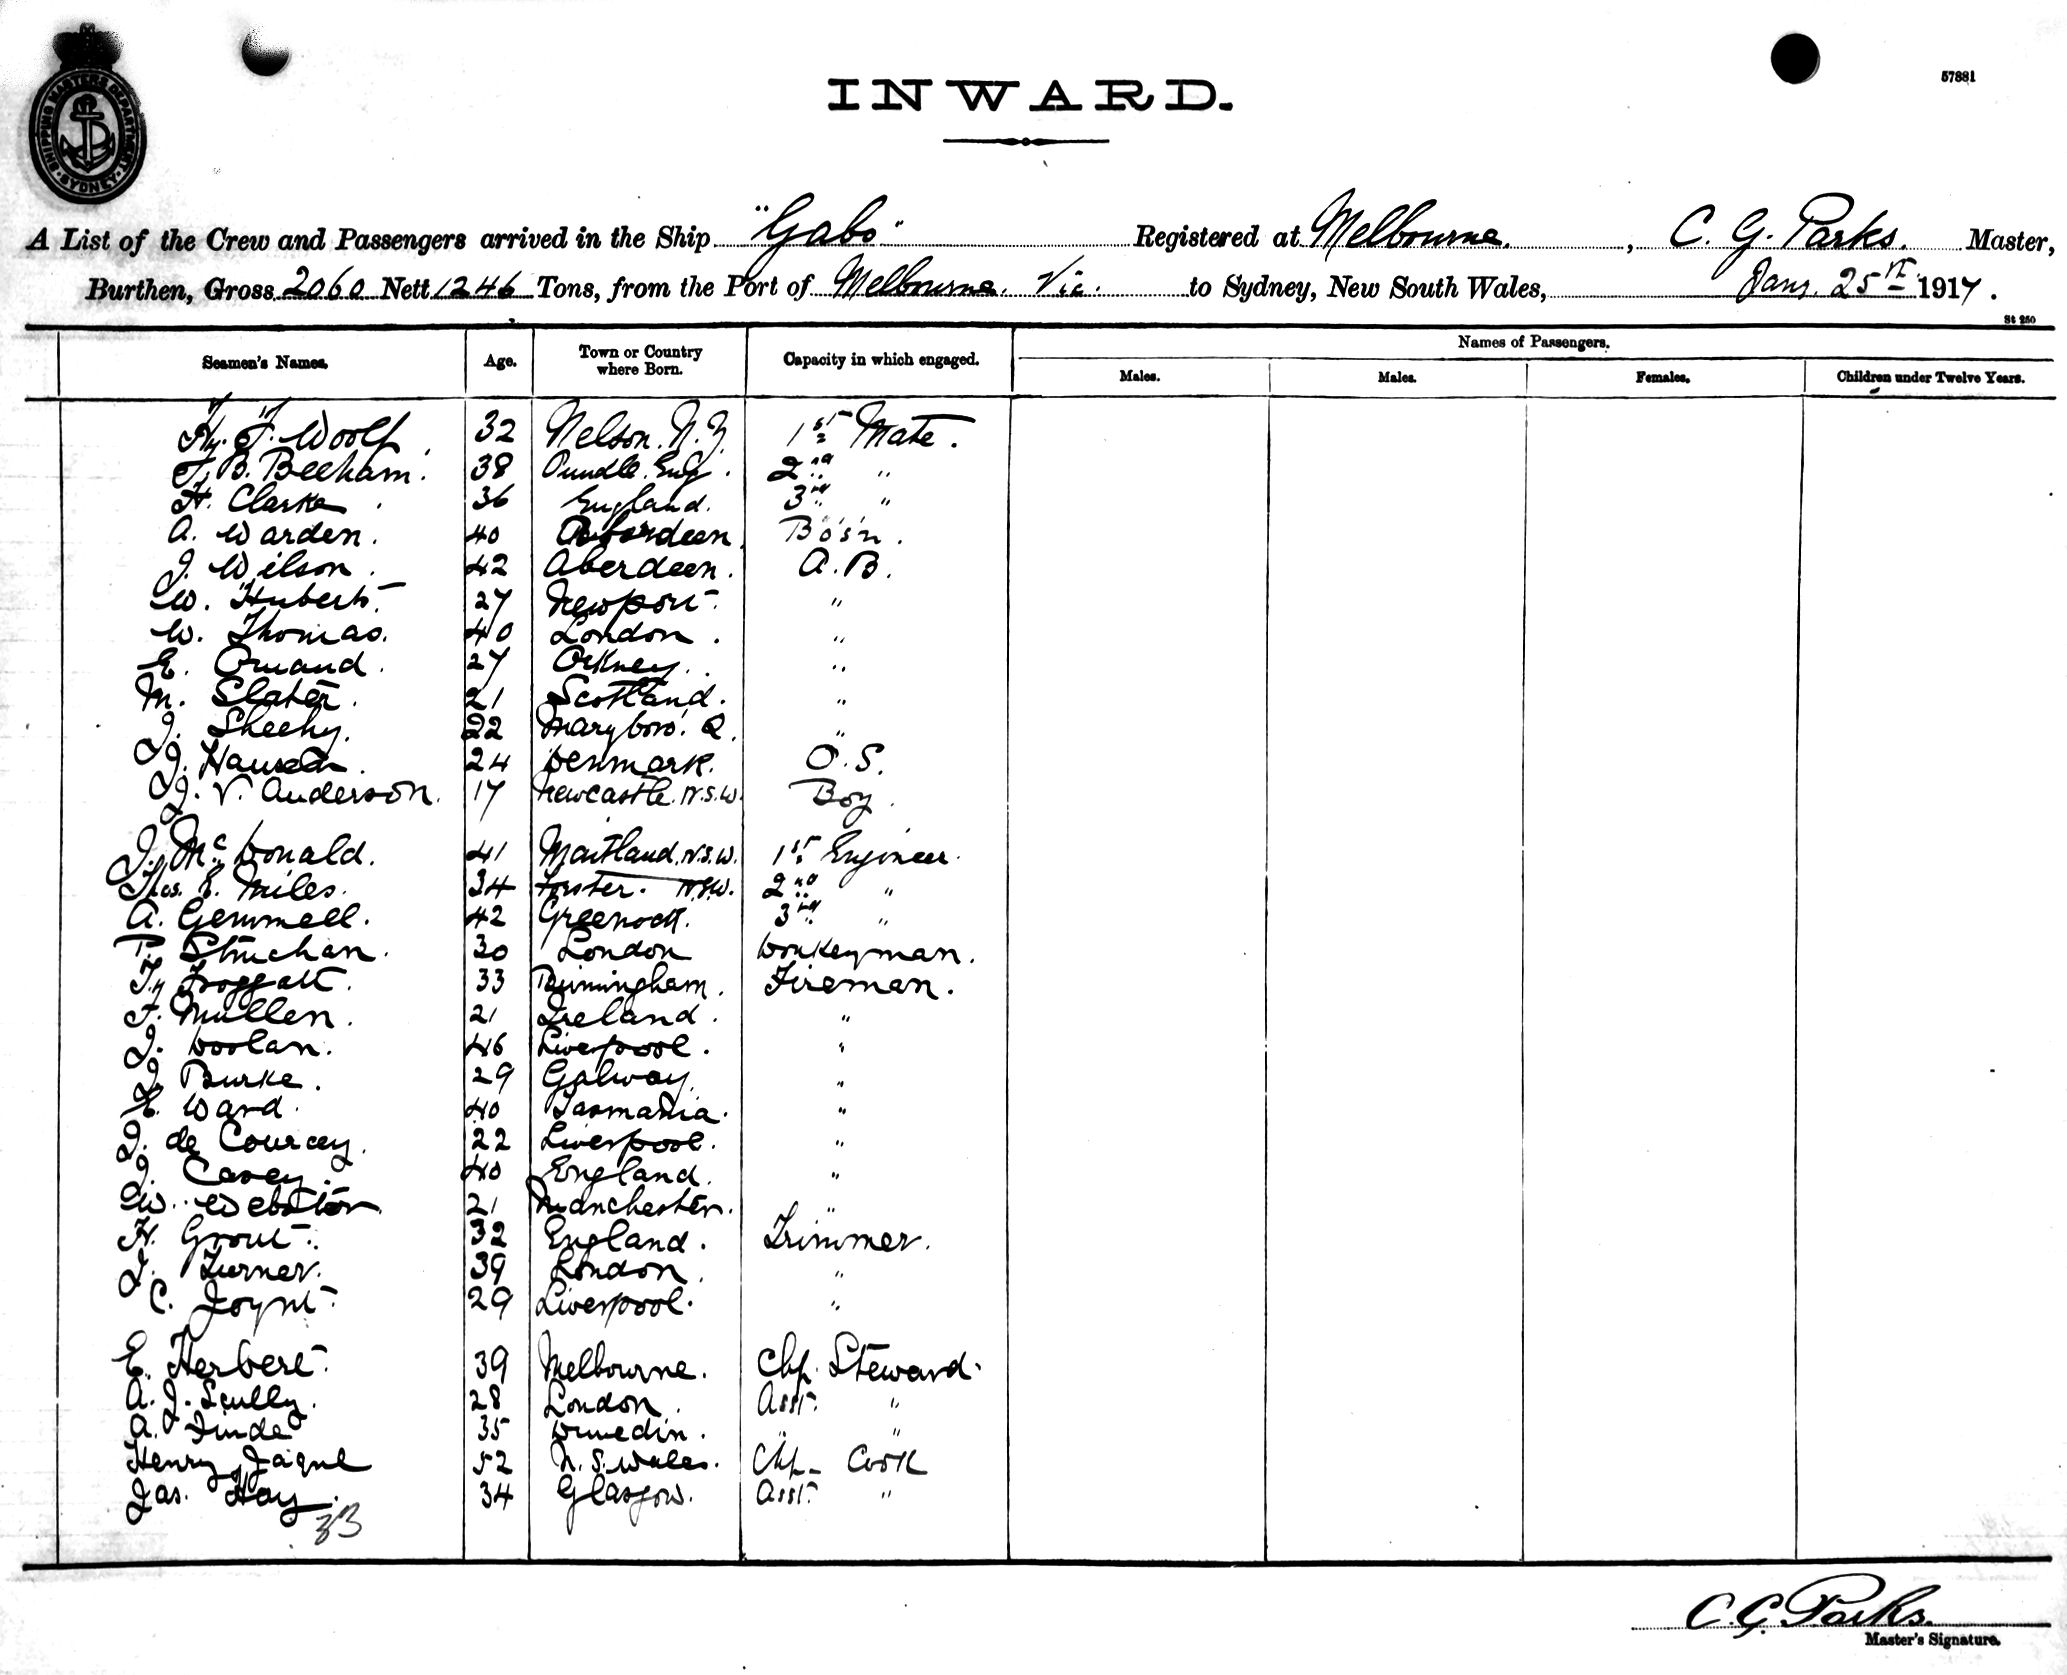 SHIPPING MASTERS DEPARTMENT SYDNEY
57881
INWARD.
A List of the Crew and Passengers arrived in the Ship "Gabo" Registered at Melbourne. , C. G. Parks. Master,
Burthen, Gross 2060 Nett 1246 Tons, from the Port of Melbourne. Vic. to Sydney, New South Wales, Jany. 25th 1917.
St 250
Seamen's Names. Age. Town or Country where Born. Capacity in which engaged. Names of Passengers.
Males. Males. Females. Children under Twelve Years.
Hy. F. Woolf. 32 Nelson. N.Z. 1st Mate.
F. B. Beeham. 38 Oundle. Eng. 2nd "
H. Clarke. 36 England. 3rd "
A. Warden. 40 Aberdeen. Bo's'n.
J. Wilson. 42 Aberdeen. A.B.
W. Hubert. 27 Newport. "
W. Thomas. 40 London. "
E. Omand. 27 Orkney. "
M. Slater. 21 Scotland. "
J. Sheehy. 22 Maryboro'. Q. "
J. Hansen. 24 Denmark. O.S.
J. V. Anderson. 17 Newcastle. N.S.W. Boy.
J. McDonald. 41 Maitland. N.S.W. 1st Engineer.
Thos. E. Miles. 34 Forster. N.S.W. 2nd "
A. Gemmell. 42 Greenock. 3rd "
P. 30 London Donkeyman.
Ty Froggatt. 33 Birmingham. Fireman.
F. Mullen. 21 Ireland. "
J. Doolan. 46 Liverpool. "
J. Burke. 29 Galway. "
E. Ward. 40 Tasmania. "
J. de Courcey. 22 Liverpool. "
J. Casey. 40 England. "
W. Webster. 21 Manchester. "
H. Grout. 32 England. Trimmer.
J. Turner. 39 London. "
C. Joynt. 29 Liverpool. "
E. Herbert. 39 Melbourne. Chf. Steward.
A. J. Scully. 28 London. Asst. "
A. Linde 35 Dunedin. " "
Henry Jaque 52 N. S. Wales. Chf. Cook
Jas. Hay. 34 Glasgow. Asst. "
33
C. G. Parks.
Master's Signature.